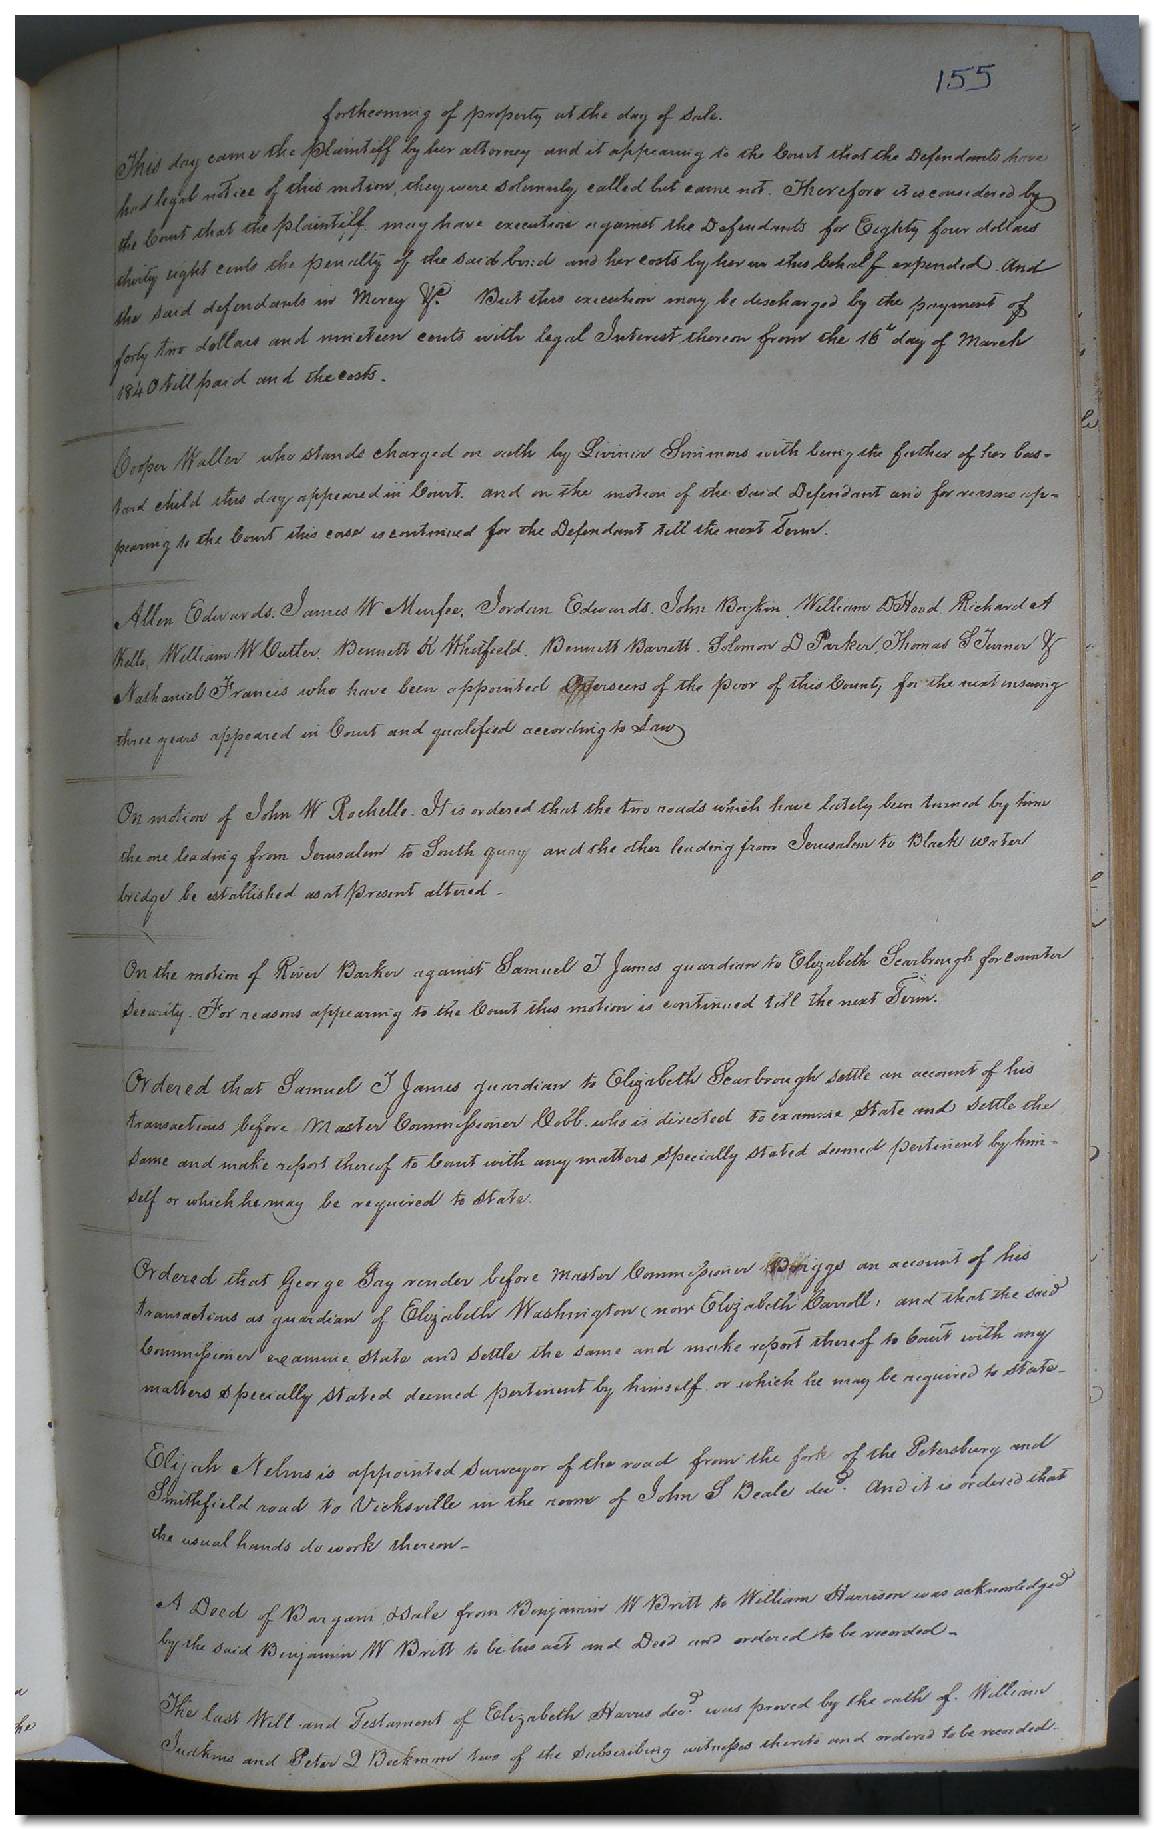 155
forthcoming of property at the day of sale.
This day came the Plaintiff by her attorney and it appearing to the Court that the Defendants have
had legal notice of this motion, they were solemnly called but came not. Therefore it is considered by
the Court that the plaintiff may have execution against the Defendants for Eighty four dollars
thirty eight cents the penalty of the said bond and her costs by her in this behalf expended. And
the said defendants in Mercy &c. But this execution may be discharged by the payment of
forty two dollars and nineteen cents with legal Interest thereon from the 16th day of March
1840 till paid and the costs.
Cooper Waller who stands charged on oath by Livinia Simmons with being the father of her bas-
tard child this day appeared in Court. and on the motion of the said Defendant and for reasons ap-
pearing to the Court this case is continued for the Defendant till the next Term.
Allen Edwards. James W Murfee, Jordan Edwards. John Boykin. William D Hood. Richard A
Kello, William W Cutler. Bennett K Whitfield. Bennett Barrett. Solomon D Parker, Thomas S Turner &
Nathaniel Francis who have been appointed Overseers of the poor of this County for the next insuing
three years appeared in Court and qualified according to Law
On motion of John W Rochelle. It is ordered that the two roads which have lately been turned by him
the one leading from Jerusalem to South quay and the other leading from Jerusalem to Black water
bridge be established as at present altered -
On the motion of River Barker against Samuel T James guardian to Elizabeth Scarbrough for counter
security. For reasons appearing to the Court this motion is continued till the next Term.
Ordered that Samuel T James guardian to Elizabeth Scarbrough settle an account of his
transactions before Master Commissioner Cobb. who is directed to examine State and settle the
same and make report thereof to Court with any matters specially stated deemed pertinent by him-
self or which he may be required to state.
Ordered that George Gay render before Master Commissioner Briggs an account of his
transactions as guardian of Elizabeth Washington (now Elizabeth Carroll) and that the said
Commissioner examine, state and settle the same and make report thereof to Court with any
matters specially stated deemed pertinent by himself or which he may be required to state -
Elijah Nelms is appointed surveyor of the road from the fork of the Petersburg and
Smithfield road to Vicksville in the room of John S Beale decd. And it is ordered that
the usual hands do work thereon -
A Deed of Bargain & Sale from Benjamin W Britt to William Harrison was acknowledged
by the said Benjamin W Britt to be his act and Deed and ordered to be recorded -
The last Will and Testament of Elizabeth Harris decd. was proved by the oath of William
Judkins and Peter Q Beckman two of the subscribing witnesses thereto and ordered to be recorded.